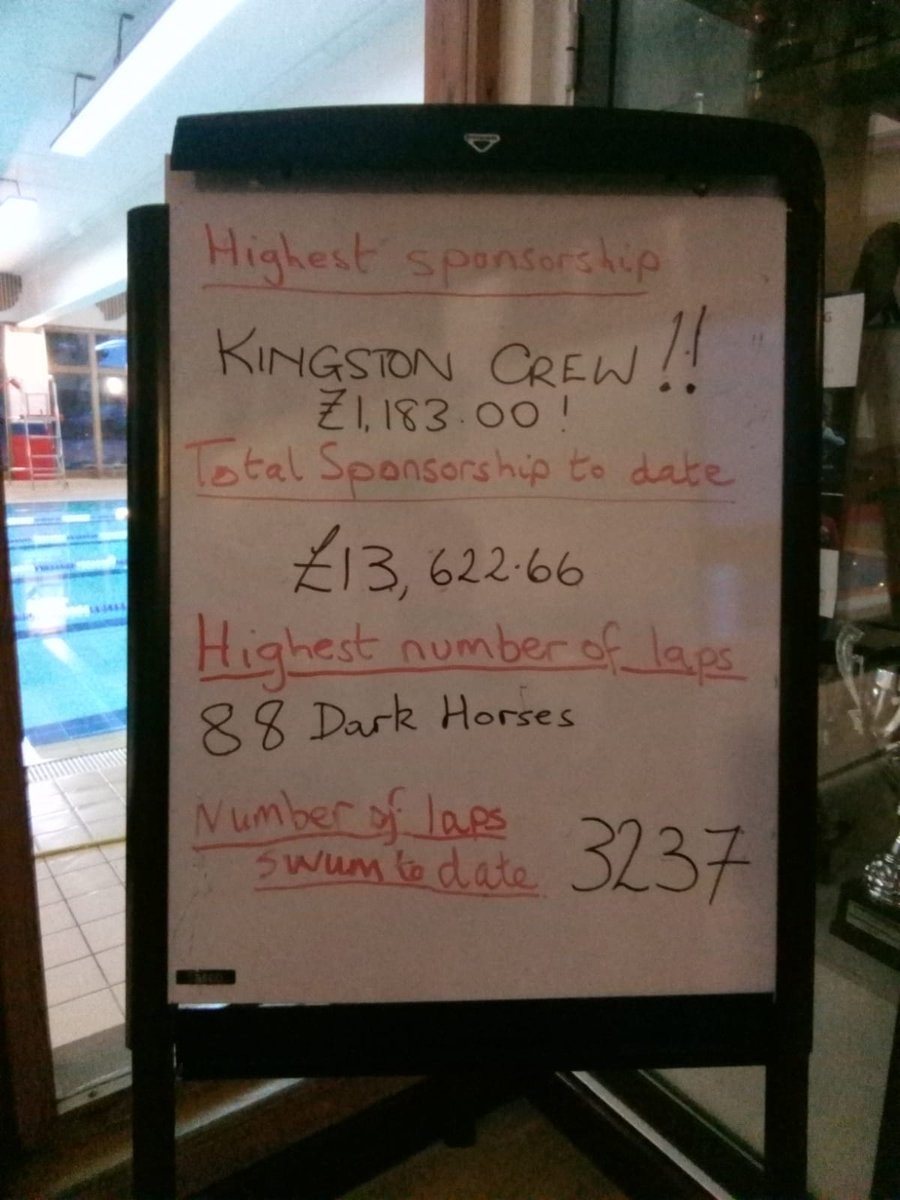 Highest sponsorship
KINGSTON CREW !!
£1,183.00!
Total Sponsorship to date
£13,622.66
Highest number of laps
88 Dark Horses
Number of laps
swum to date 3237